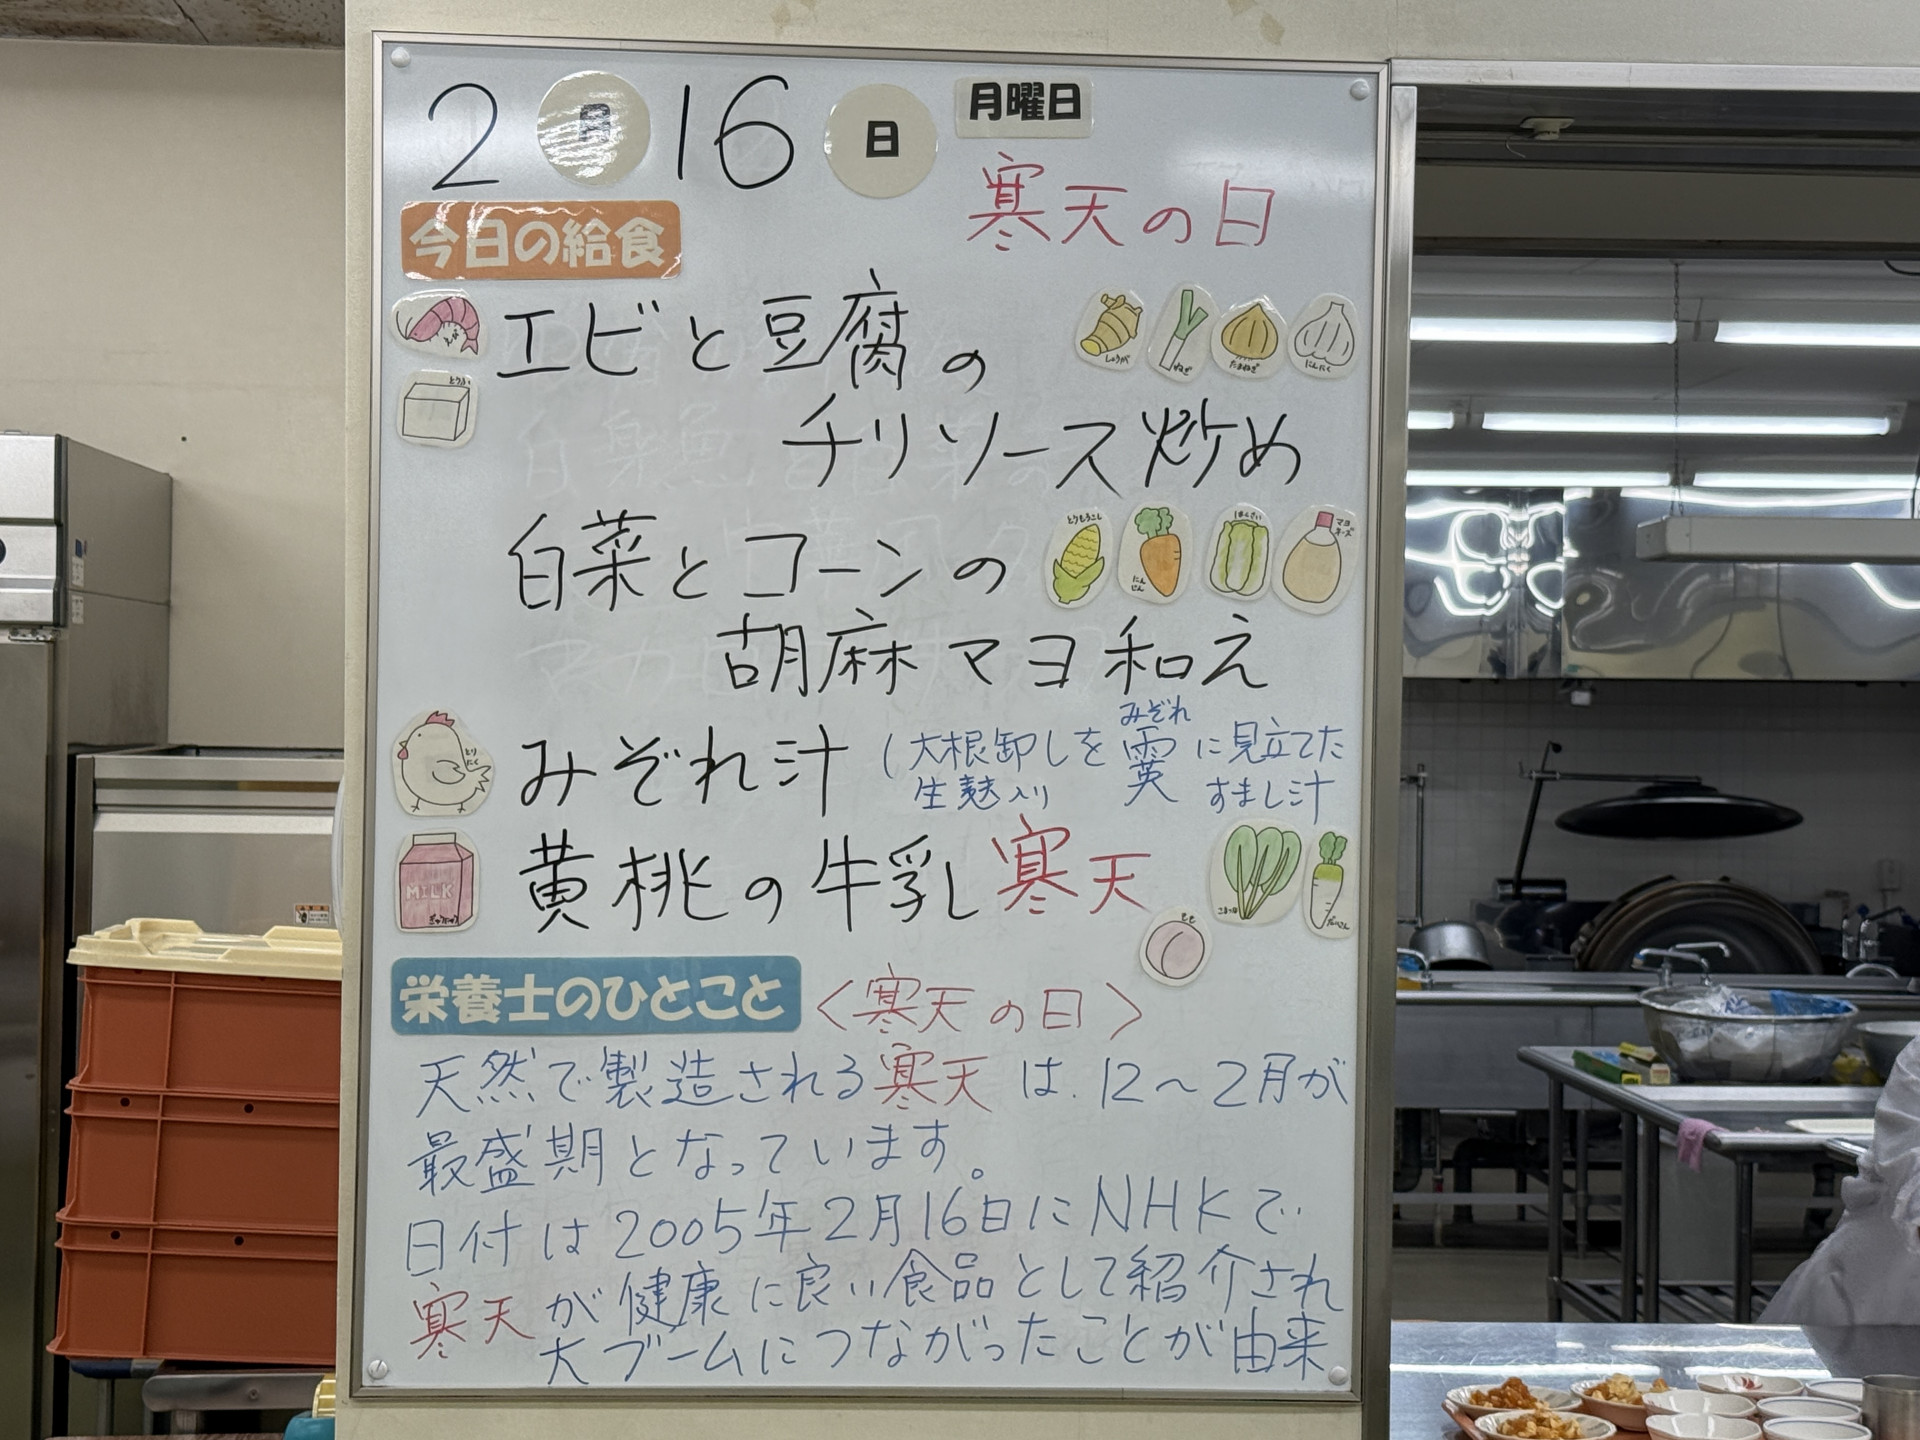 2月16日 月曜日
寒天の日
今日の給食
えび
エビと豆腐の
しょうが
ねぎ
たまねぎ
にんにく
とうふ
チリソース炒め
白菜とコーンの
とうもろこし
にんじん
はくさい
マヨネーズ
胡麻マヨ和え
とりにく
みぞれ汁
みぞれ
(大根卸しを霙に見立てた
生麩入り すまし汁
MILK
ぎゅうにゅう
黄桃の牛乳寒天
こまつな
だいこん
もも
栄養士のひとこと 〈寒天の日〉
天然で製造される寒天は、12〜2月が
最盛期となっています。
日付は2005年2月16日にNHKで
寒天が健康に良い食品として紹介され
大ブームにつながったことが由来